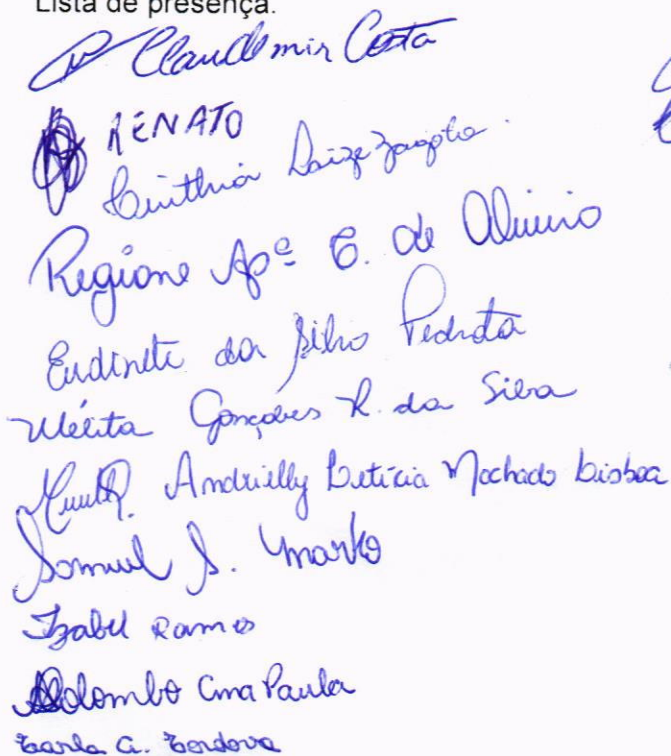 Lista de presença.
Claudemir Costa
RENATO
Cinthia
Regiane Apª C. de
Eudinete da Silva
Mélita Gonçalves R. da Silva
Andrielly Letícia Machado Lisboa
Samuel S.
Izabel Ramos
Colombo Ana Paula
Carla C. Cordova